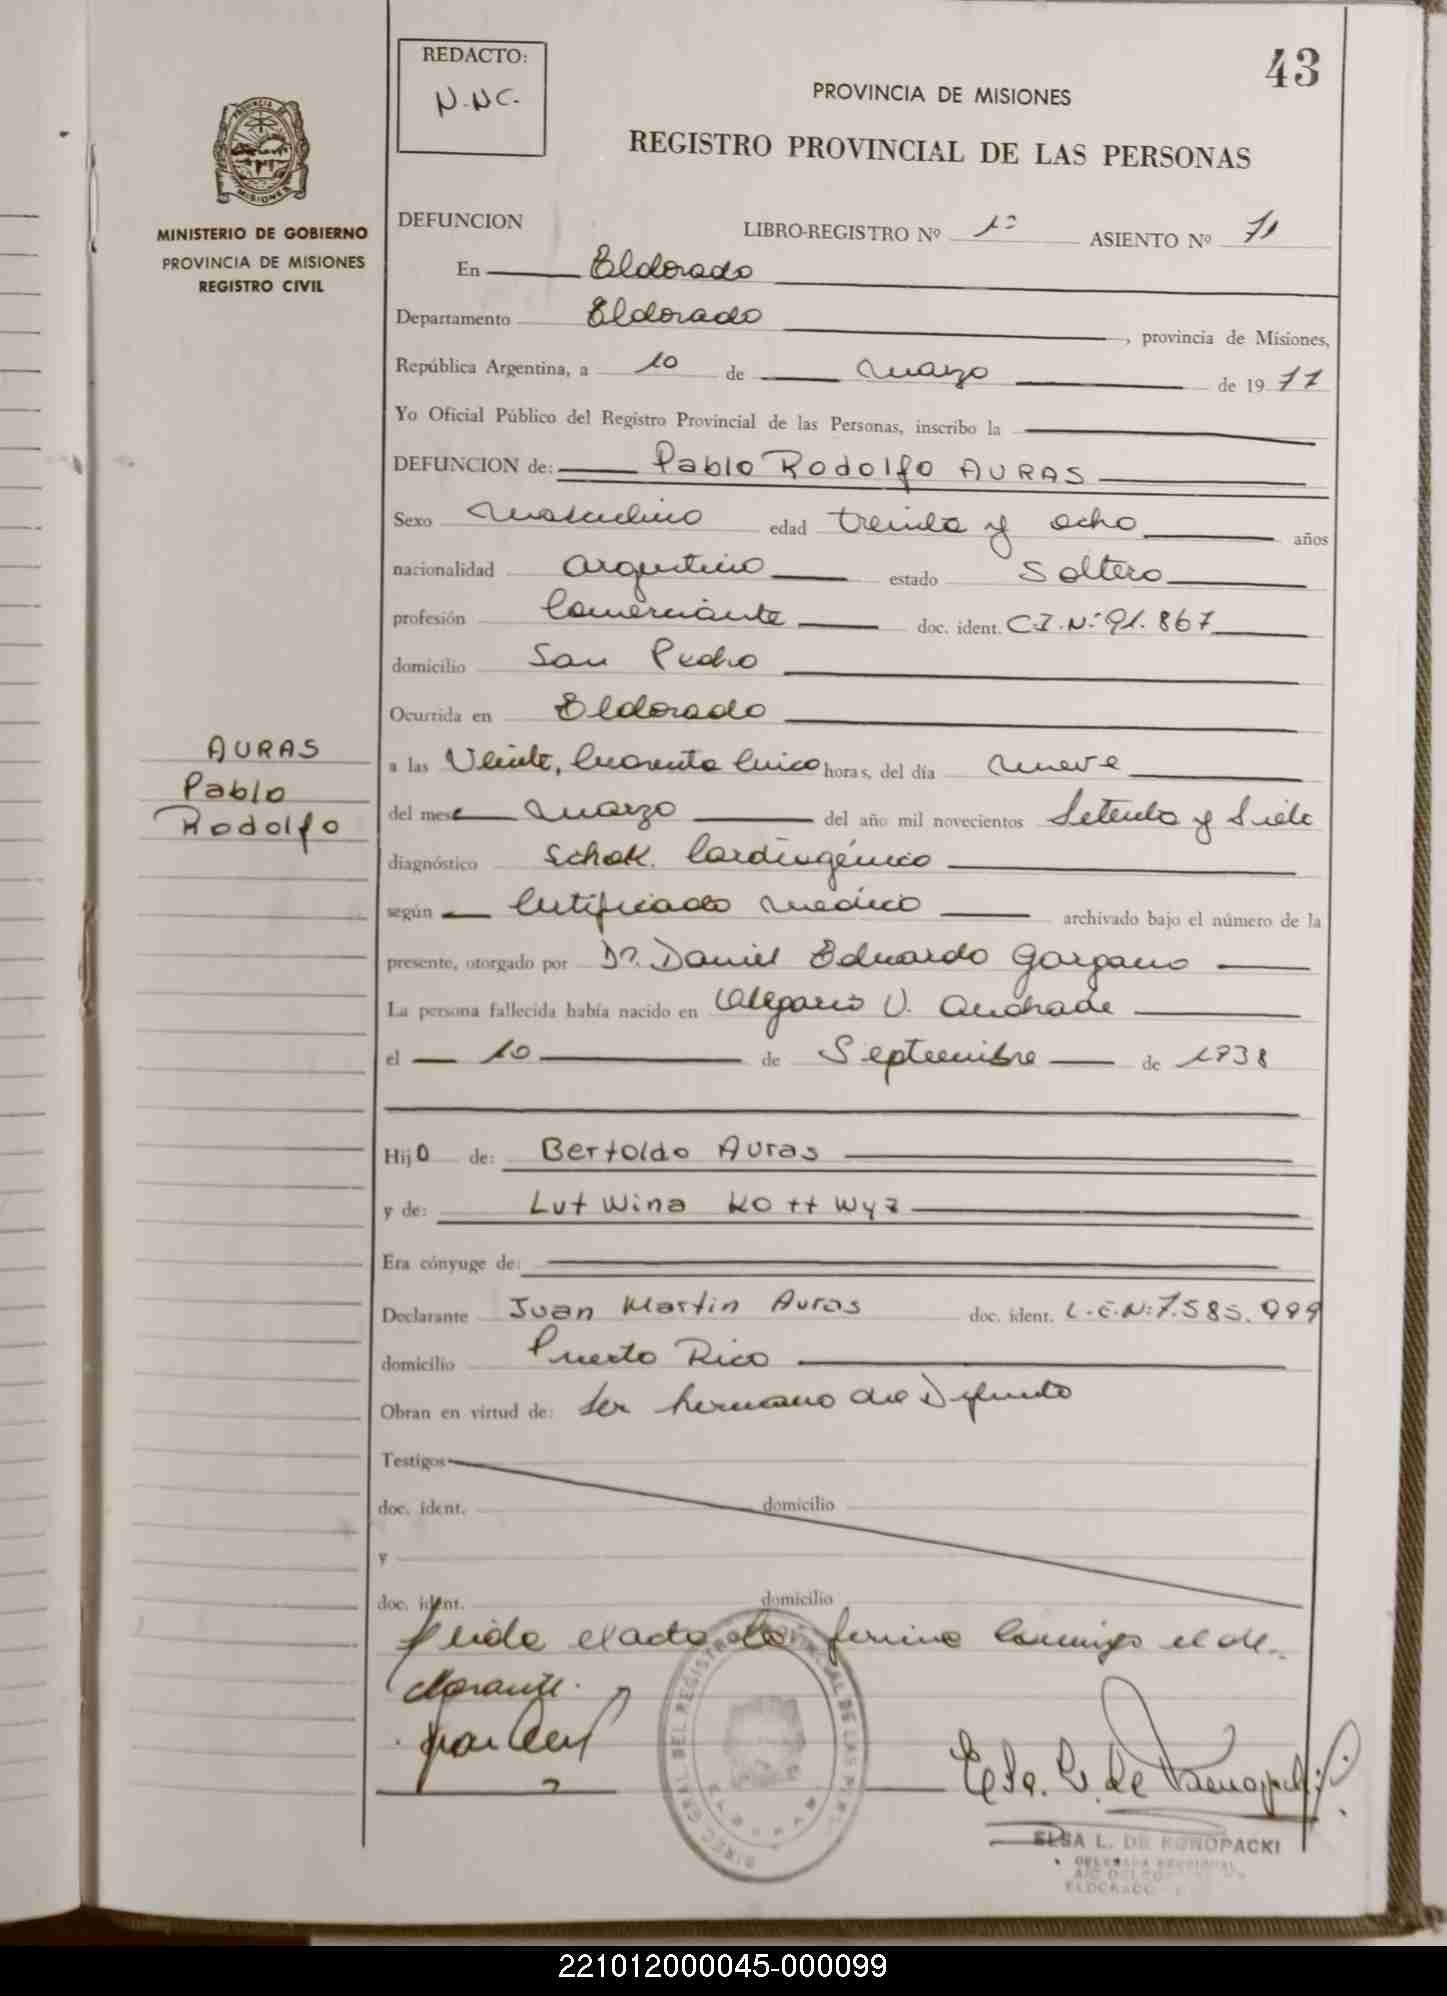 43
REDACTO:
N.NC.
PROVINCIA DE MISIONES
REGISTRO PROVINCIAL DE LAS PERSONAS
MINISTERIO DE GOBIERNO
PROVINCIA DE MISIONES
REGISTRO CIVIL
DEFUNCION LIBRO-REGISTRO Nº 1º ASIENTO Nº 71
En Eldorado
Departamento Eldorado, provincia de Misiones,
República Argentina, a 10 de marzo de 1977
Yo Oficial Público del Registro Provincial de las Personas, inscribo la
DEFUNCION de: Pablo Rodolfo AURAS
Sexo Masculino edad treinta y ocho años
nacionalidad argentino estado Soltero
profesión Comerciante doc. ident. C.I.Nº 91.867
domicilio San Pedro
Ocurrida en Eldorado
AURAS
Pablo
Rodolfo
a las Veinte, Cuarenta Cinco horas, del día nueve
del mes marzo del año mil novecientos Setenta y Siete
diagnóstico Schok. Cardiogénico
según Certificado medico archivado bajo el número de la
presente, otorgado por Dr. Daniel Eduardo Gargano
La persona fallecida había nacido en Olegario V. Andrade
el 10 de Septiembre de 1938
Hijo de: Bertoldo Auras
y de: Lutwina Kottwyz
Era cónyuge de:
Declarante Juan Martin Auras doc. ident. L.E.N: 7.585.999
domicilio Puerto Rico
Obran en virtud de: Ser hermano del Difunto
Testigos
doc. ident. domicilio
y
doc. ident. domicilio
Leida el acta la firma conmigo el de-
clarante.
ELSA L. DE KONOPACKI
DELEGADA REGIONAL
ELDORADO
221012000045-000099